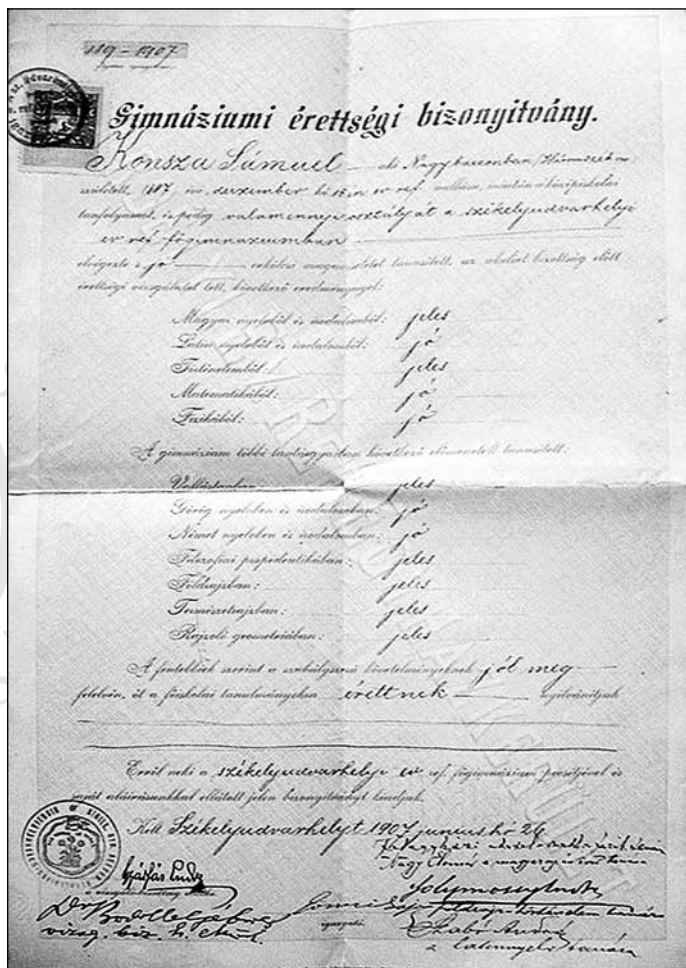 119 - 1907
Gimnáziumi érettségi bizonyitvány.
Konsza Sámuel aki Nagybaczonban (Háromszék m)
született, 1887 évi deczember hó 18.-n ev ref. vallásu, miután a középiskolai
tanfolyamot, és pedig valamennyi osztályát a székelyudvarhelyi
ev ref. főgimnáziumban
elvégezte s jó erkölcsi magaviseletet tanusított, az alulirt bizottság előtt
érettségi vizsgálatot tett, következő eredménynyel:
Magyar nyelvből és irodalomból: jeles
Latin nyelvből és irodalomból: jó
Történelemből: jeles
Matematikából: jó
Fizikából: jó
A gimnázium többi tantárgyaiban következő előmenetelt tanusított:
Vallástanban: jeles
Görög nyelvben és irodalomban: jó
Német nyelvben és irodalomban: jó
Filozofiai propedeutikában: jeles
Földrajzban: jeles
Természetrajzban: jeles
Rajzoló geometriában: jeles
A fentebbiek szerint a szabályszerű követelményeknek jól meg-
felelvén, őt a főiskolai tanulmányokra érettnek nyilvánitjuk
Erről neki a székelyudvarhelyi ev ref. főgimnázium pecsétjével és
saját aláírásunkkal ellátott jelen bizonyitványt kiadjuk.
Kelt Székelyudvarhelyt 1907 junius hó 26
Nagy
Solymossy
történelem tanára
igazgató
Szabó András
a latin nyelv tanára